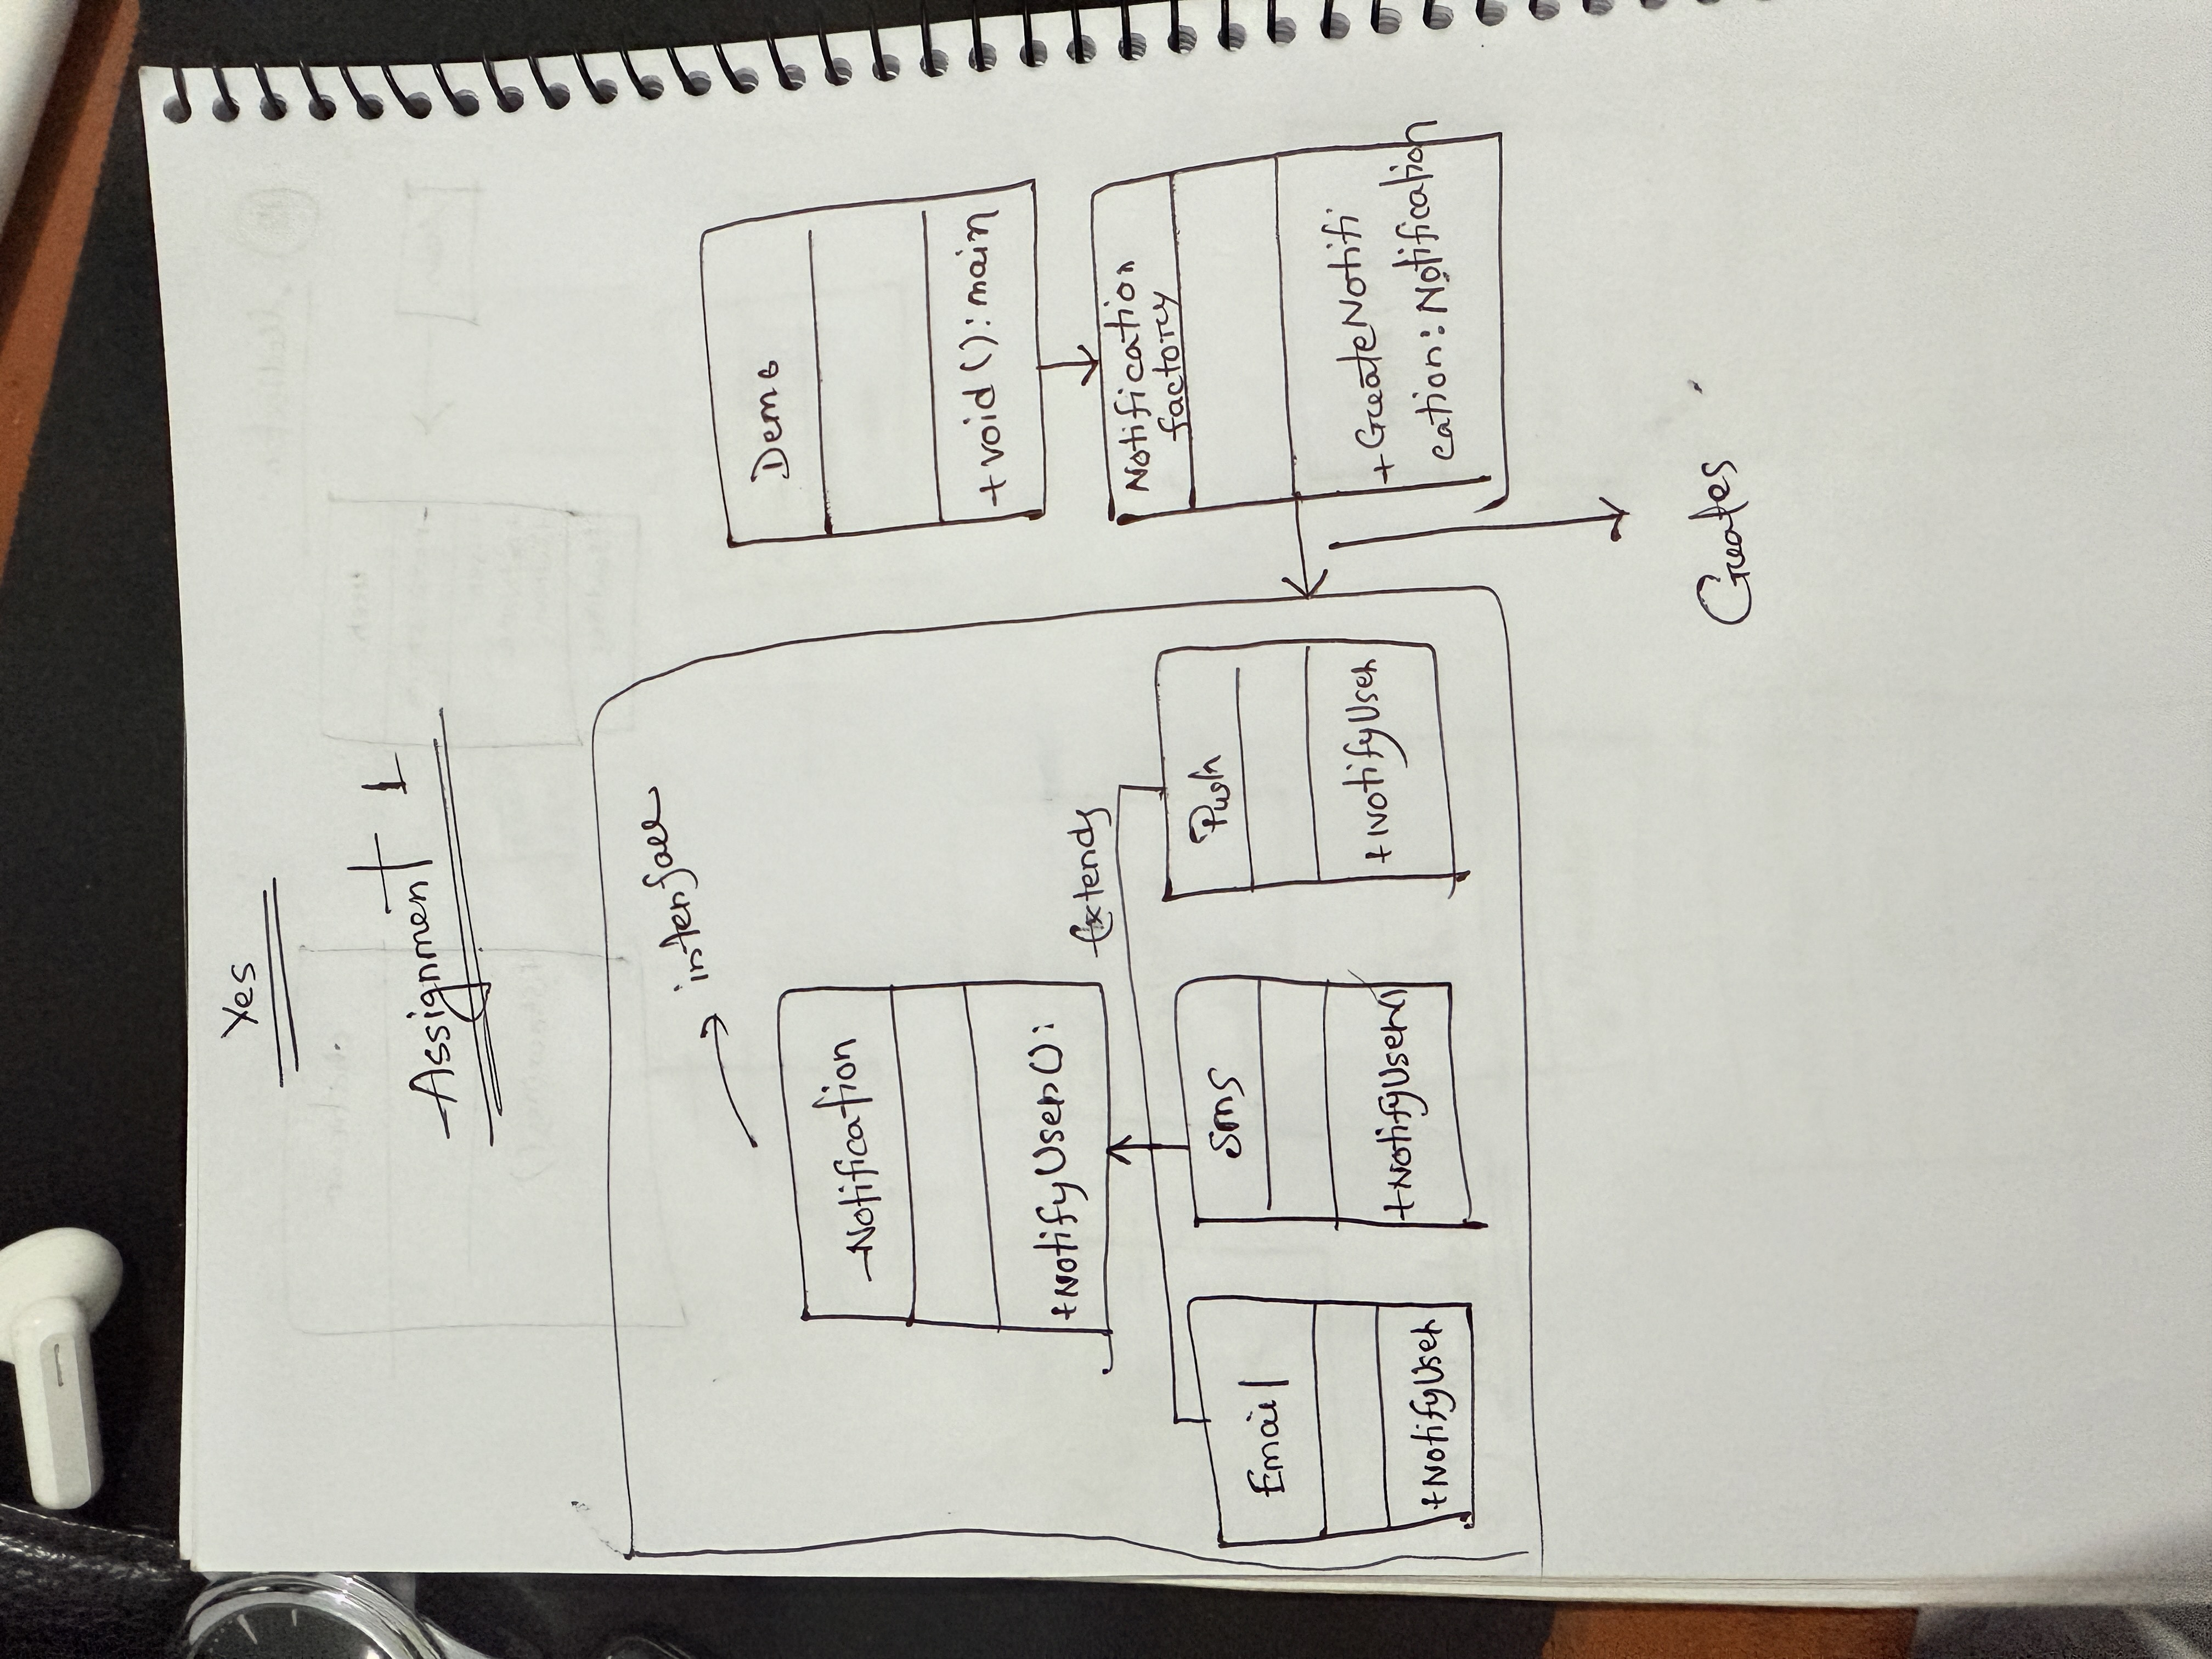 Yes
Assignment 1
interface
Notification
+NotifyUser():
Extends
Email
+NotifyUser
Sms
+NotifyUser()
Push
+NotifyUser
Demo
+void():main
Notification
factory
+CreateNotifi
cation: Notification
Creates